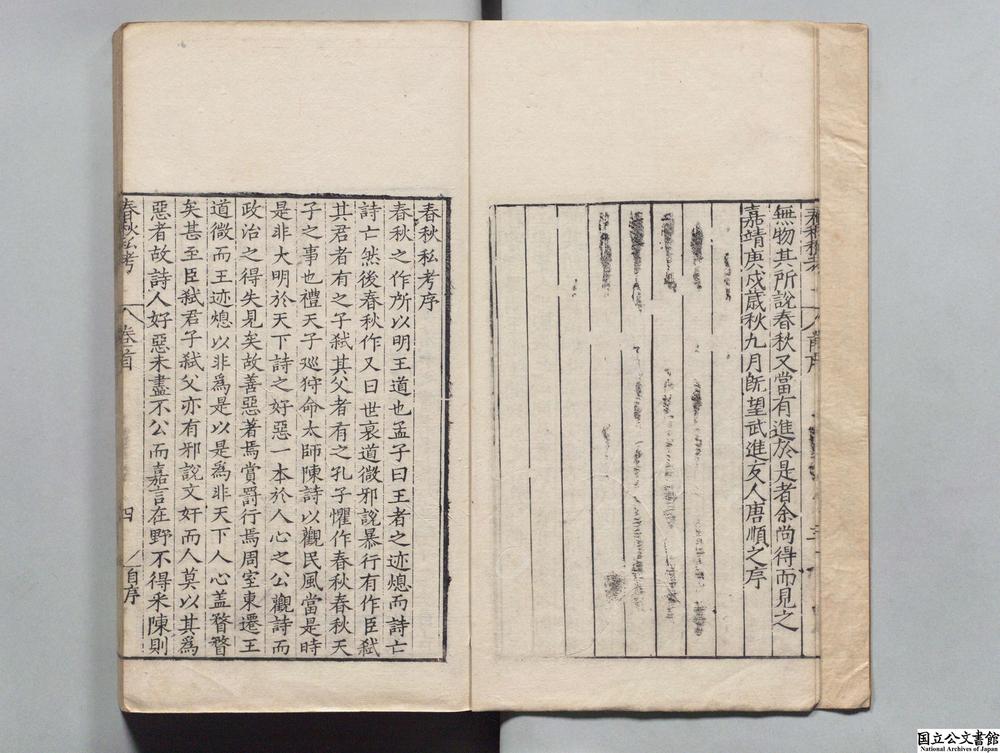 無物其所說春秋又當有進於是者余尚得而見之
嘉靖庚戌歲秋九月旣望武進友人唐順之序
春秋私考序
春秋之作所以明王道也孟子曰王者之迹熄而詩亡
詩亡然後春秋作又曰世衰道微邪說暴行有作臣弒
其君者有之子弒其父者有之孔子懼作春秋春秋天
子之事也禮天子巡狩命太師陳詩以觀民風當是時
是非大明於天下詩之好惡一本於人心之公觀詩而
政治之得失見矣故善惡著焉賞罰行焉周室東遷王
道微而王迹熄以非爲是以是爲非天下人心盖瞀瞀
矣甚至臣弒君子弒父亦有邪說文奸而人莫以其爲
惡者故詩人好惡未盡不公而嘉言在野不得釆陳則
春秋私考 卷首 四 自序
国立公文書館
National Archives of Japan